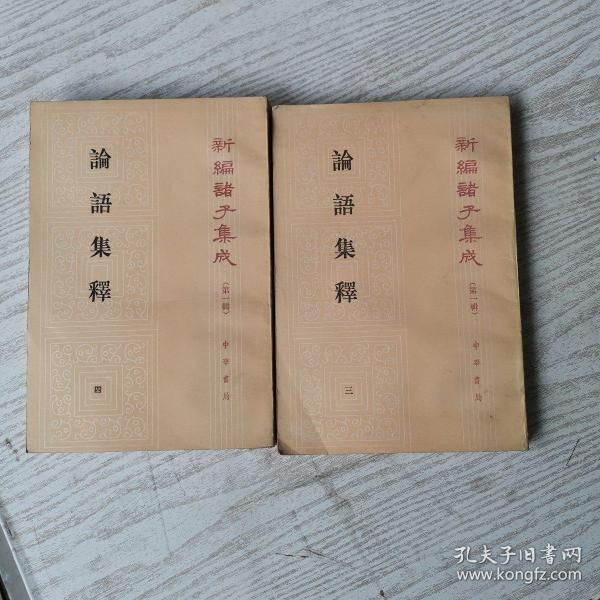 新編諸子集成
（第一輯）
中華書局
論語集釋
四
新編諸子集成
（第一輯）
中華書局
論語集釋
三
孔夫子旧書网
www.kongfz.com